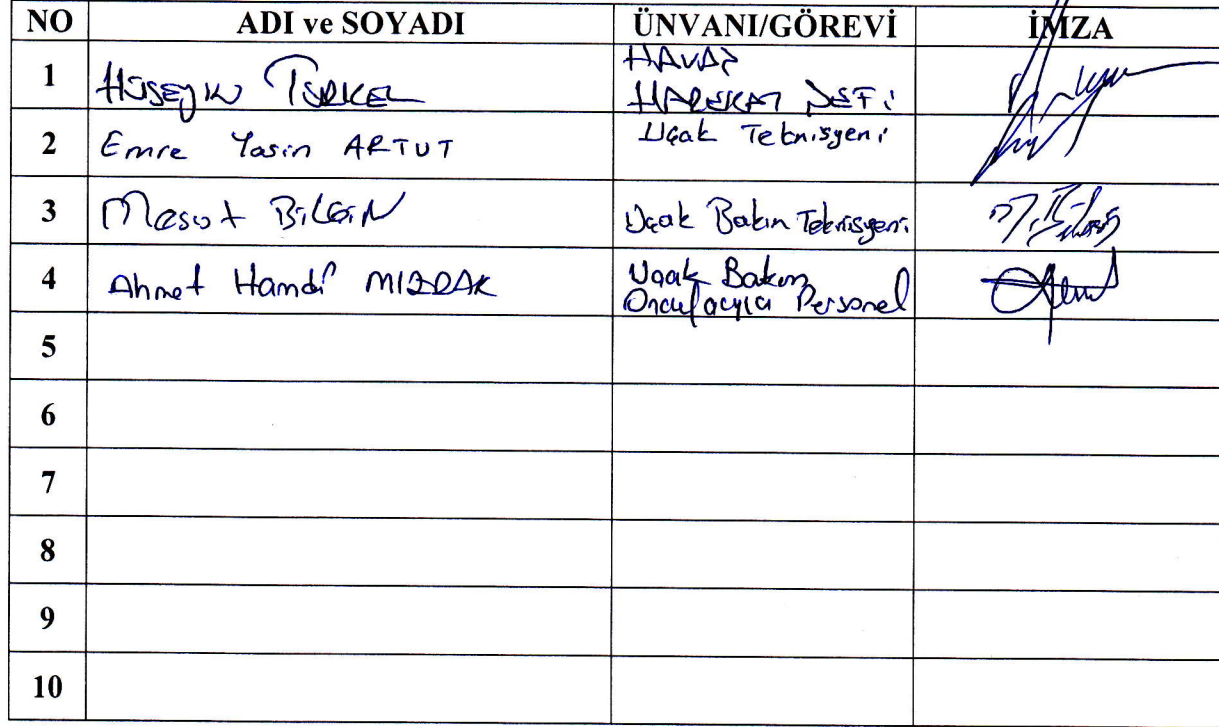 NO ADI ve SOYADI ÜNVANI/GÖREVİ İMZA
1 Hüseyin TÜRKEL HAVAŞ
HAREKAT ŞEFİ
2 Emre Yasin ARTUT Uçak Teknisyeni
3 Mesut BİLGİN Uçak Bakım Teknisyeni
4 Ahmet Hamdi MIZRAK Uçak Bakım
Onaylayıcı Personel
5
6
7
8
9
10